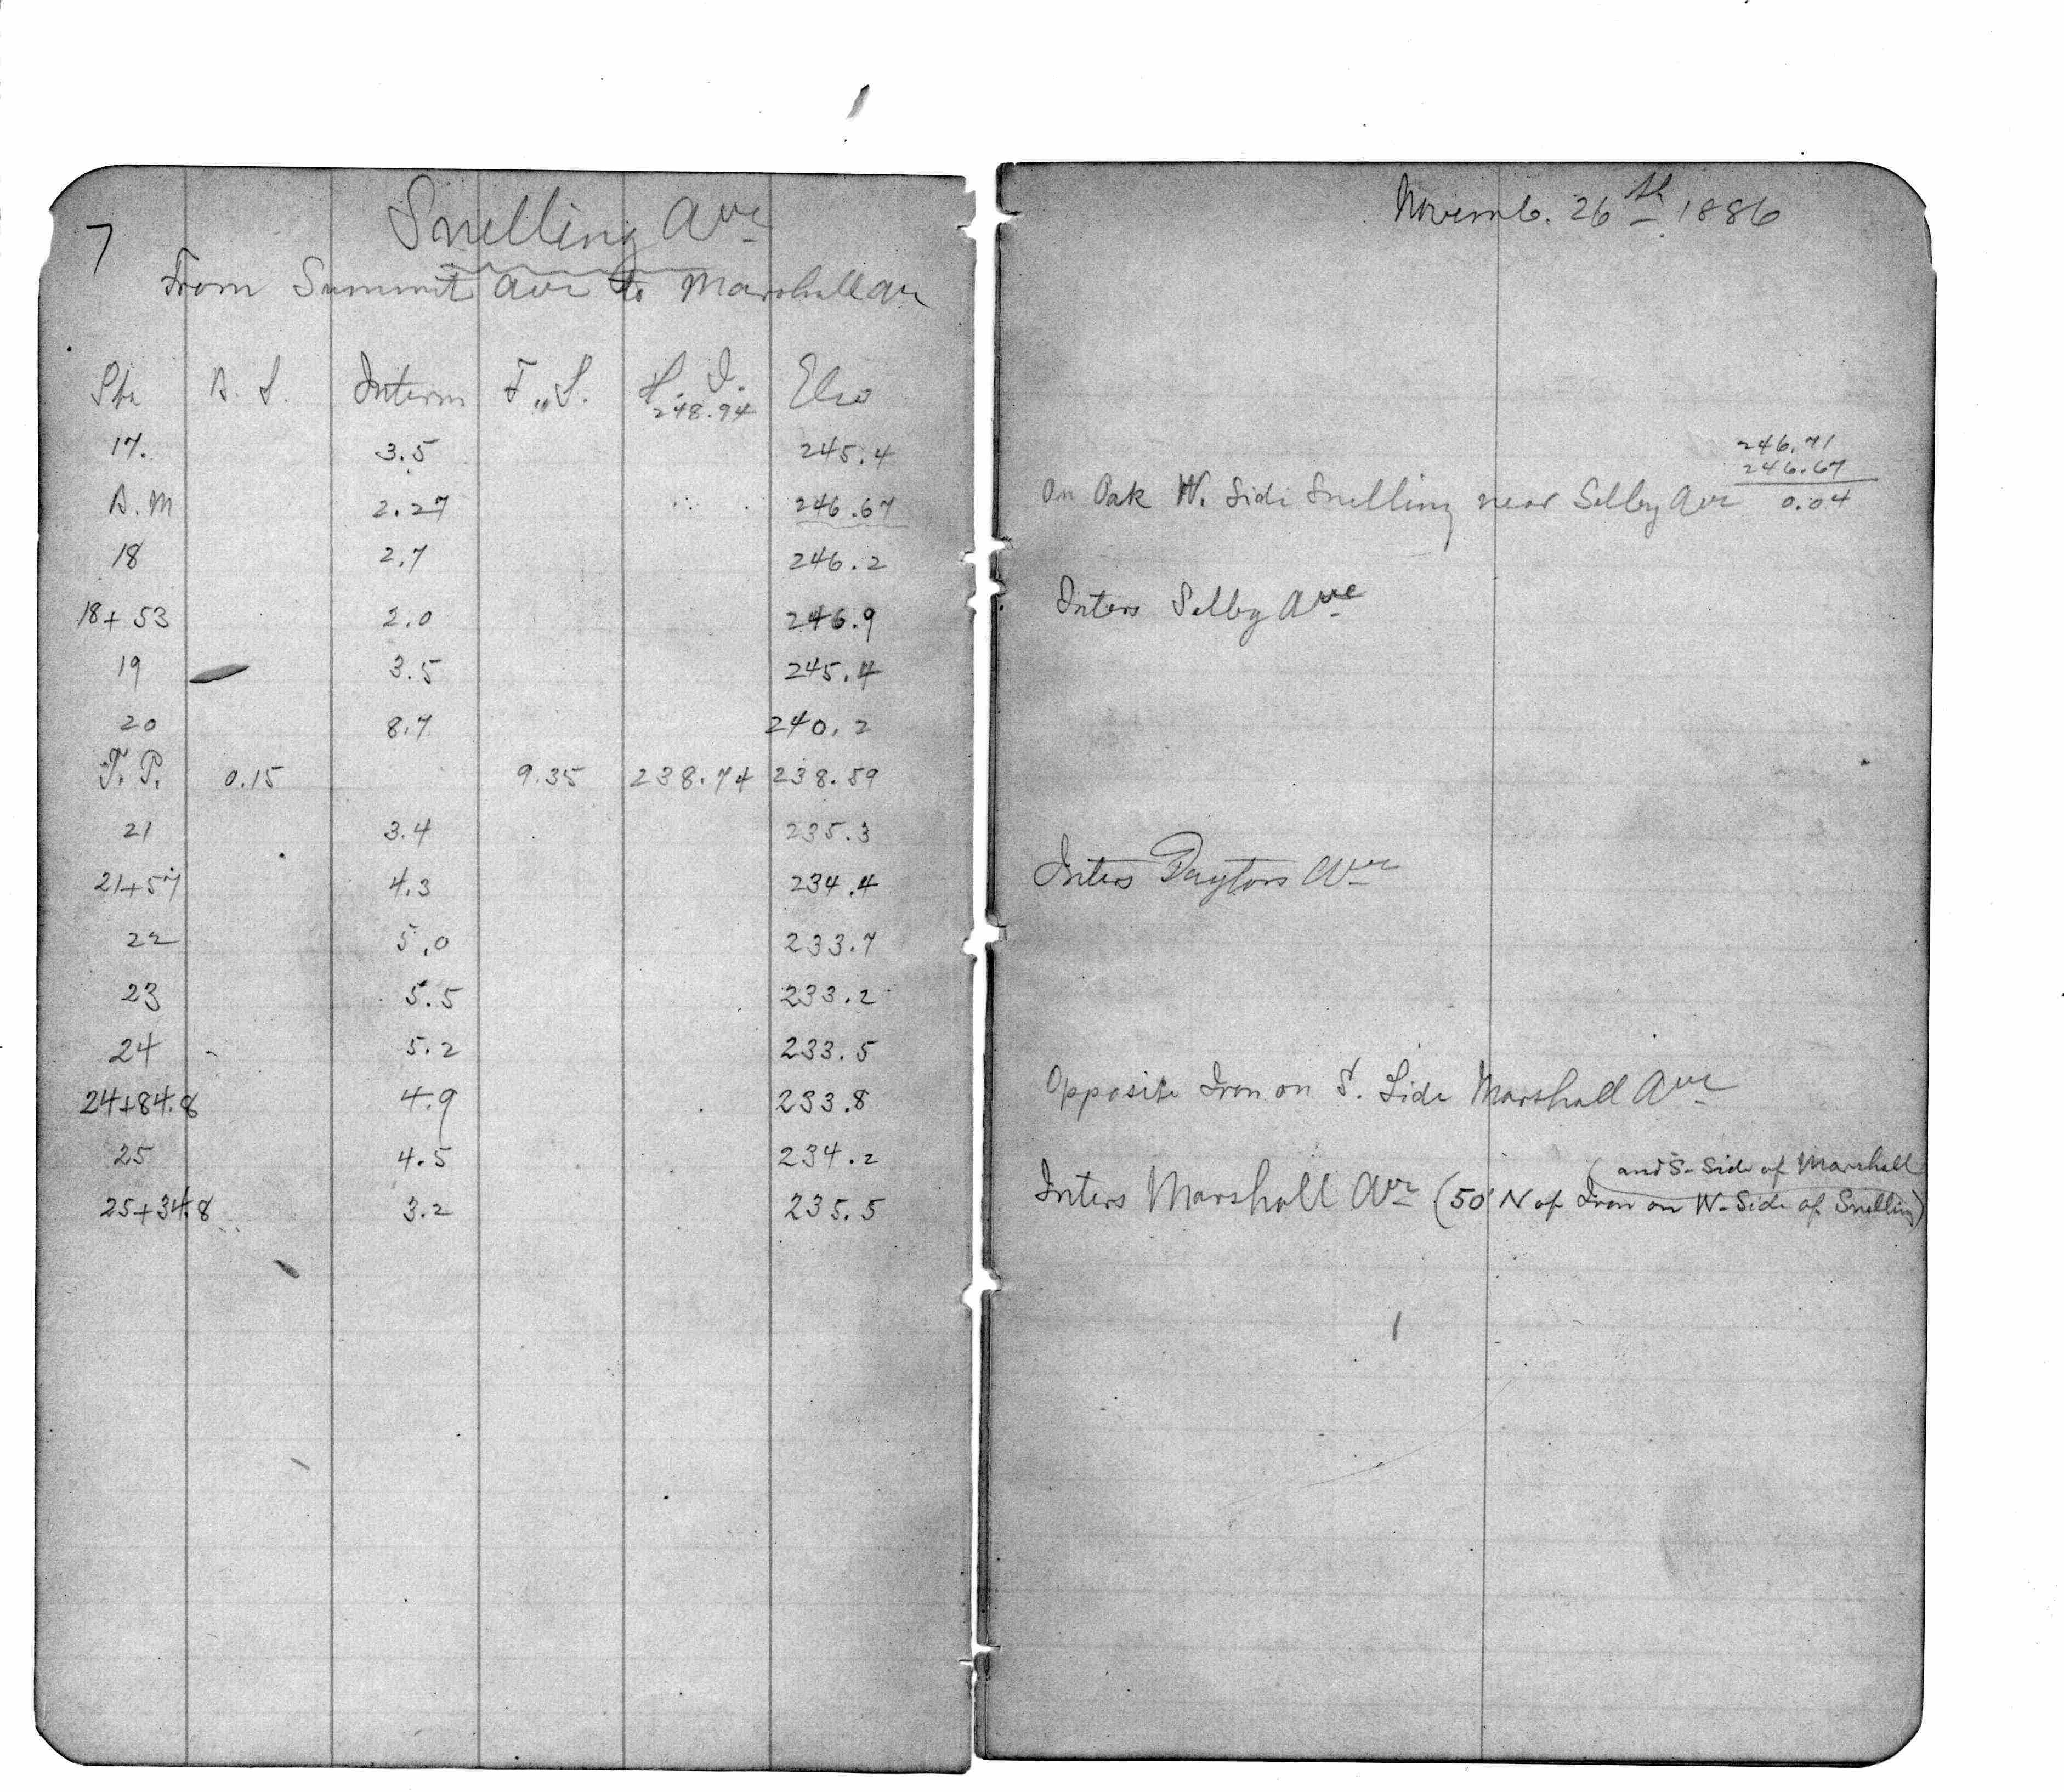 7
Snelling Ave
From Summit Ave to Marshall Av
Sta B. S. Interm F. S. H. I. Elev
248.94
17. 3.5 245.4
B.M 2.27 246.67
18 2.7 246.2
18+53 2.0 246.9
19 3.5 245.4
20 8.7 240.2
T. P. 0.15 9.35 238.74 238.59
21 3.4 235.3
21+57 4.3 234.4
22 5.0 233.7
23 5.5 233.2
24 5.2 233.5
24+84.8 4.9 233.8
25 4.5 234.2
25+34.8 3.2 235.5
Novemb. 26th 1886
246.71
246.67
On Oak W. Side Snelling near Selby Ave 0.04
Inters Selby Ave
Inters Dayton Ave
Opposite Iron on S. Side Marshall Ave
(and S. Side of Marshall
Inters Marshall Ave (50' N of Iron on W. Side of Snelling)